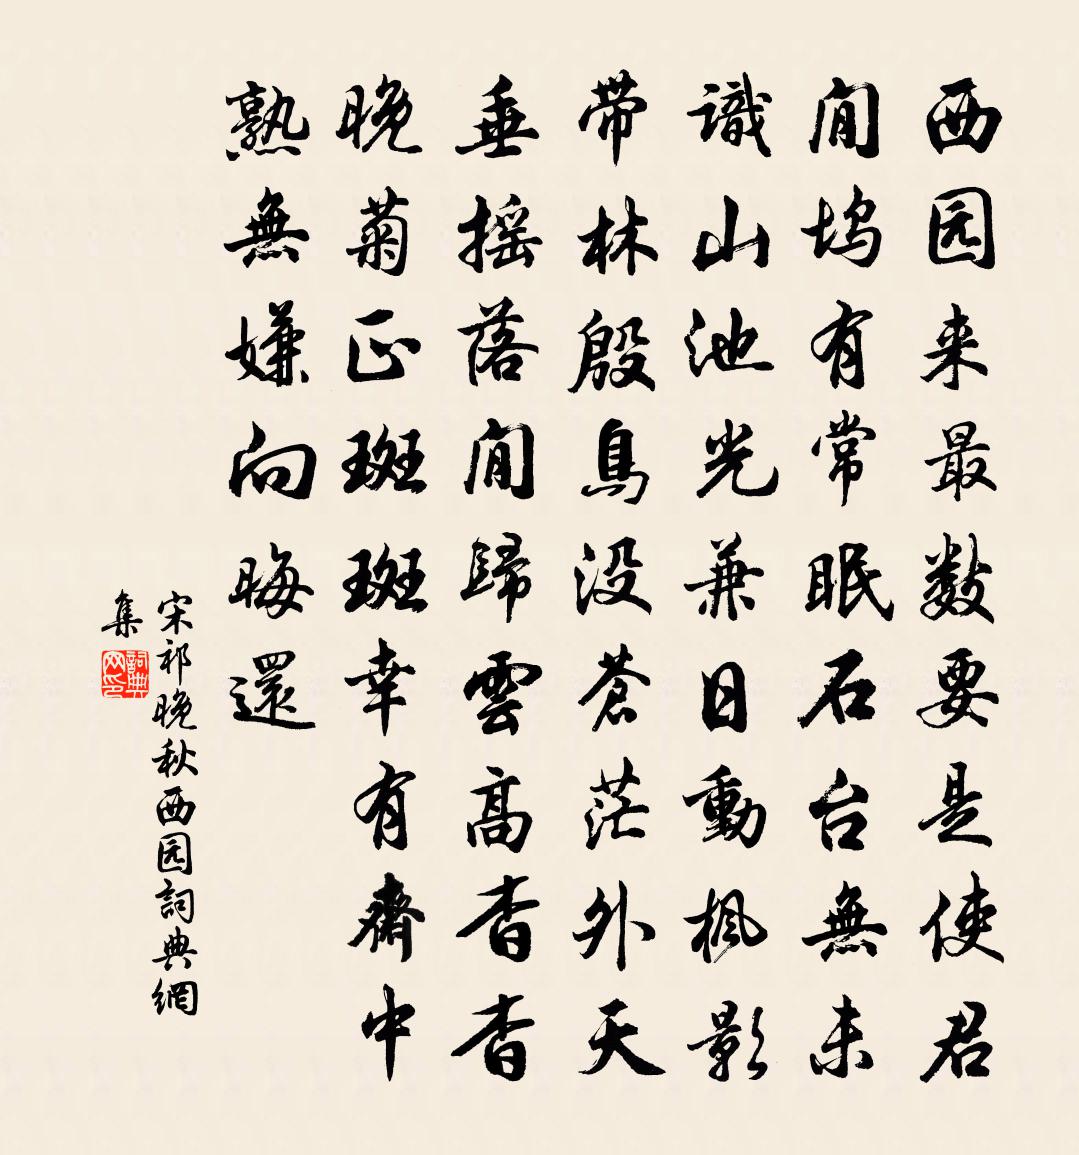 西园来最数要是使君
閒坞有常眠石台無未
識山池光兼日動枫影
带林殷鳥没蒼茫外天
垂摇落閒歸雲高杳杳
晚菊正斑斑幸有齋中
熟無嫌向晦還
宋祁晚秋西园詞典網
集
詞典
网印